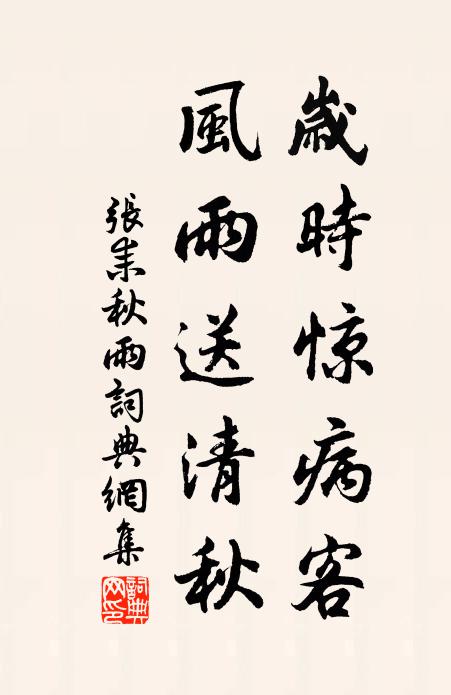 歲時惊病客
風雨送清秋
張耒秋雨詞典網集
詞典网印